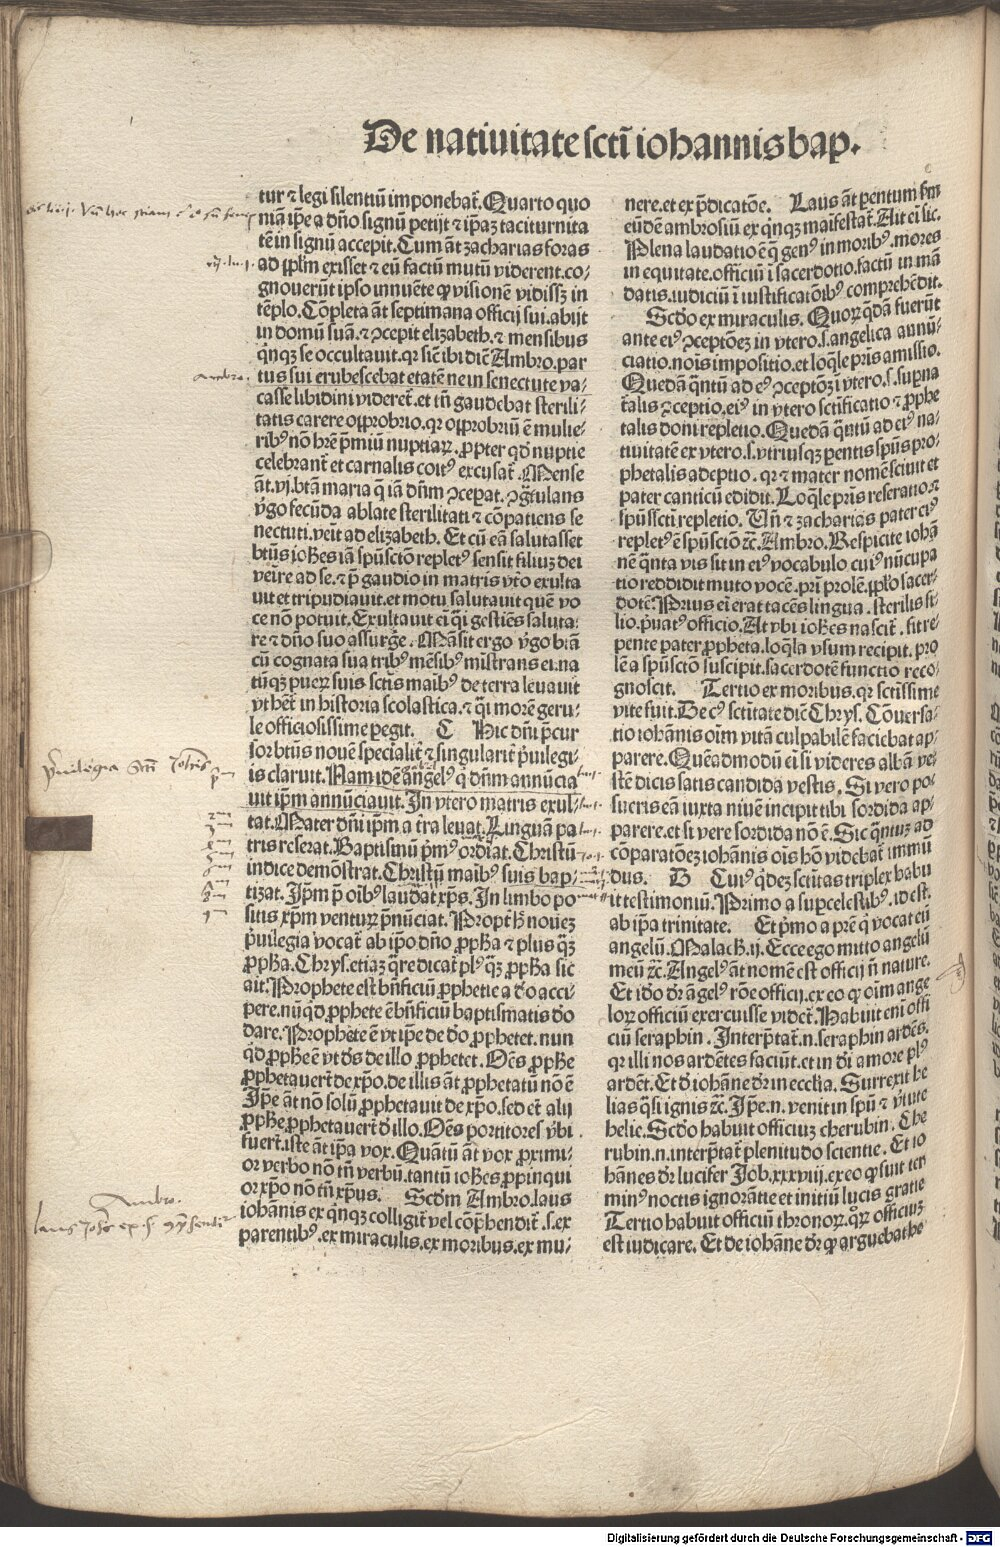 De natiuitate sctī iohannis bap.
tur ⁊ legi silentiū imponebat̄. Quarto quo
niā ip̄e a dn̄o signū petijt ⁊ ip̄aꝫ taciturnita
tē in signū accepit. Cum āt zacharias foras
ad pp̄lm exisset ⁊ eū factū mutū viderent. co-
gnouerūt ipso innuēte ꝙ visionē vidissꝫ in
tēplo. Cōpleta āt septimana officij sui. abijt
in domū suā. ⁊ ꝯcepit elizabeth. ⁊ mensibus
qͥnqꝫ se occultauit. qꝛ sic̄ ibi dic̄ Ambro. par
tus sui erubescebat etatē ne in senectute va-
casse libidini videret̄. et tn̄ gaudebat sterili-
tatis carere opprobrio. qꝛ opprobriū ē mulie-
ribꝰ nō hr̄e p̄miū nuptiaꝝ. ꝓpter qd̄ nuptie
celebrant̄ et carnalis coitꝰ excusat̄. Mense
āt. vj. btā maria q̄ iā dn̄m ꝯceꝑat. ꝯgͣtulans
v̓go fecūda ablate sterilitati ⁊ cōpatiens se
nectuti. veīt ad elizabeth. Et cū eā salutasset
btūs ioħes iā spūsctō repletꝰ sensit filiuꝫ dei
veīre ad se. ⁊ p̄ gaudio in matris vt̓o exulta
uit et tripudiauit. et motu salutauit quē vo
ce nō potuit. Exultauit em̄ qͥ gestiēs saluta-
re ⁊ dn̄o suo assurg̓e. Māsit ergo v̓go btā
cū cognata sua tribꝰ mēsibꝰ mīstrans ei. na
tūqꝫ pueꝝ suis sctis maībꝰ de terra leuauit
vt hēt̄ in historia scolastica. ⁊ qͥsi morē geru-
le officiosissime pegit. C Hic dn̄i p̄cur
sor btūs nouē specialit̓ ⁊ singularit̓ p̓uilegi-
is claruit. Nam idē angelꝰ q dn̄m annūcia
uit ip̄m annūciauit. In vtero matris exul-
tat. Mater dn̄i ip̄m a t̓ra leuat. Linguā pa
tris reserat. Baptismū p̓mꝰ ordīat. Christū
indice demōstrat. Christū maībꝰ suis bap-
tizat. Ip̄m p̄ oībꝰ laudat xp̄s. In limbo po
sitis xp̄m ventuꝝ p̄nūciat. Propt̓ h̓ noueꝫ
p̓uilegia vocat̄ ab ip̄o dn̄o ꝓpħa ⁊ plus qͣꝫ
ꝓpħa. Chrys. etiaꝫ qͣre dicat̄ plꝰ qͣꝫ ꝓpħa sic
ait. Prophete est bn̄ficiū ꝓphetie a do acci-
pere. nūqͥd ꝓphete ē bn̄ficiū baptismatis do
dare. Prophete ē vt ip̄e de do ꝓphetet. nun
qͥd ꝓpħe ē vt ds̄ de illo ꝓphetet. Oēs ꝓpħe
ꝓphetauert̄ de xp̄o. de illis āt ꝓphetatū nō ē
Ip̄e āt nō solū ꝓphetauit de xp̄o. sed et̄ alij
ꝓpħe ꝓphetauert̄ d̓ illo. Oēs portitores v̓bi
fuert̄. iste āt ip̄a vox. Quātū āt vox ꝓximi-
or verbo nō tn̄ verbū. tantū ioħes ꝓpinqui
or xp̄o nō tn̄ xp̄us. Scdm Ambro. laus
iohānis ex qͥnqꝫ colligit̄ vel cōp̄hendit̄. s. ex
parentibꝰ. ex miraculis. ex moribus. ex mu-
nere. et ex p̄dicatōe. Laus āt ꝑentum scdm
eūdē ambrosiū ex qͥnqꝫ maīfestat̄. Ait ei lic.
Plena laudatio ē q̄ genꝰ in moribꝰ. mores
in equitate. officiū ī sacerdotio. factū in mā
datis. iudiciū ī iustificatōibꝰ comprehēdit.
Scdo ex miraculis. Quoꝝ qͥdā fuerūt
ante eiꝰ ꝯceptōeꝫ in vtero. s. angelica annū-
ciatio. nois impositio. et loqͤle pr̄is amissio.
Quedā qͣntū ad eiꝰ ꝯceptōꝫ ī vtero. s. suꝑna
talis ꝯceptio. eiꝰ in vtero sctīficatio ⁊ ꝓphe
talis doni repletio. Quedā qͣntū ad eiꝰ na-
tiuitatē ex vtero. s. vtriusqꝫ ꝑentis spūs pro-
phetalis adeptio. qꝛ ⁊ mater nomē sciuit et
pater canticū edidit. Loqͤle pr̄is reseratio. ⁊
spūssctī repletio. Vn̄ ⁊ zacharias pater eiꝰ
repletꝰ ē spūsctō ⁊c̄. Ambro. Respicite iohā
nē qͣnta vis sit in eiꝰ vocabulo cuiꝰ nūcupa
tio reddidit muto vocē. pr̄i prolē. pp̄lo sacer-
dotē. Prius em̄ erat tacēs lingua. sterilis fi-
lio. p̓uatꝰ officio. At vbi ioħes nascit̄. fit re-
pente pater ꝓpheta. loqͤla vsum recipit. pro
lē a spūsctō suscipit. sacerdotē functio reco-
gnoscit. Tertio ex moribus. qꝛ sctīssime
vite fuit. De cꝰ sctītate dic̄ Chrys. Cōuersa-
tio iohānis oīm vitā culpabilē faciebat ap-
parere. Quēadmodū em̄ si videres albā ve-
stē dicis satis candida vestis. Si vero po-
sueris eā iuxta niuē incipit tibi sordida ap-
parere. et si vere sordida nō ē. Sic qͣntuꝫ ad
cōparatōeꝫ iohānis oīs hō videbat̄ immū
dus. D Cuiꝰ qͥdeꝫ sctītas triplex habu
it testimoniū. Primo a suꝑcelestibꝰ. id est.
ab ip̄a trinitate. Et p̓mo a pr̄e qͥ vocat eū
angelū. Malacħ. ij. Ecce ego mitto angelū
meū ⁊c̄. Angelꝰ āt nomē est officij n̄ nature.
Et ido dr̄ āgelꝰ rōe officij. ex eo ꝙ oīm ange
loꝝ officiū exercuisse videt̄. Habuit eni offi
ciū seraphin. Interp̄tat̄. n. seraphin ardēs.
qꝛ illi nos ardētes faciūt. et in di amore plꝰ
ardēt. Et d̓ iohāne dr̄ in ecclīa. Surrexit he
lias qͣsi ignis ⁊c̄. Ip̄e. n. venit in spū ⁊ v̓tute
helie. Scdo habuit officiuꝫ cherubin. Che
rubin. n. interp̄tat̄ plenitudo scientie. Et io
hānes dr̄ lucifer Job. xxxviij. ex eo ꝙ fuit ter
minꝰ noctis ignorātie et initiū lucis gratie
Tertio habuit officiū thronoꝝ. qͦꝝ officiuꝫ
est iudicare. Et de iohāne dr̄ ꝙ arguebat he
Ambro.
Ambro.
Digitalisierung gefördert durch die Deutsche Forschungsgemeinschaft - DFG